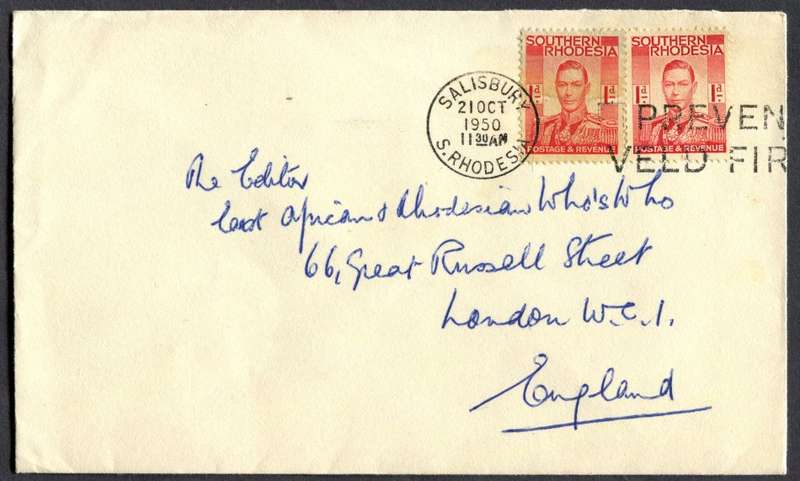 SOUTHERN RHODESIA
1d 1d
POSTAGE & REVENUE
SOUTHERN RHODESIA
1d 1d
POSTAGE & REVENUE
SALISBURY
21 OCT
1950
11 30 AM
S. RHODESIA
PREVEN
VELD FIR
The Editor
East African & Rhodesian Who's Who
66, Great Russell Street
London W.C.1.
England